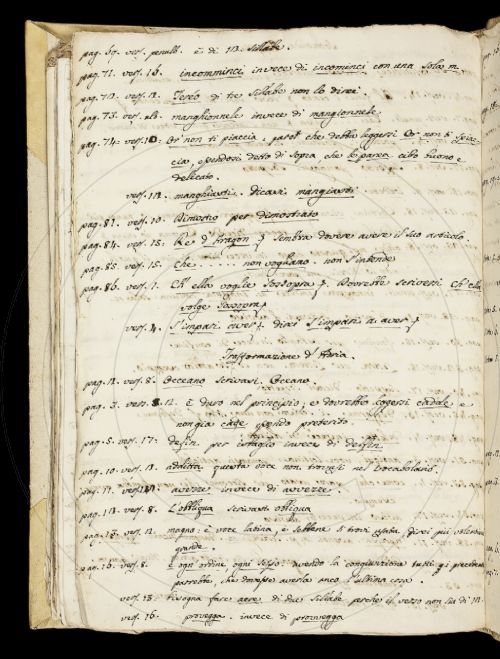 pag. 69. vers. penult. è di 12. sillabe.
pag. 71. vers. 16. incomminci invece di incominci con una sola m.
pag. 72. vers. 12. Terso di tre sillabe non lo direi.
pag. 73. vers. manghionnele invece di mangionnele
pag. 74. vers. 10: Or non ti piaccia, parmi che debba leggersi Or non ti spiac-
cia, essendosi detto di sopra che le parea cibo buono e
delicato.
vers. 12. manghiasti. Dicasi mangiasti
pag. 81. vers. 10. Dimostro per dimostrato
pag. 84. vers. 15: Re d'Aragon sembra dovere avere il suo articolo.
pag. 85. vers. 15. Che ..... non vogliano. non s'intende
pag. 86. vers. 1. Ch'ella voglia sossopra. Dovrebbe scriversi Ch'ella
volge sossopra
vers. 4. S'impari aver. direi S'impari ad aver
Trasformazione d'Adria.
pag. 12. vers. 8. Occeano scrivasi Oceano.
pag. 3. vers. 12. È duro nel principio, e dovrebbe leggersi cadde e
non già cade essendo preterito
pag. 5. vers. 17: desin. per invece di
pag. 10. vers. 12. additta questa voce non trovasi nel Vocabolario.
pag. 11. vers. avezze invece di avvezze.
pag. 12. vers. 8. L'obbliqua scrivasi obliqua
pag. 15. vers. 12. magno, è voce latina, e sebbene si trovi usata, direi più volentieri
grande.
pag. 16. vers. 8. e ogni ordine, ogni sesso: avendo la congiunzione tutti gi
parrebbe, che dovesse averla anco l'ultima cosa.
vers. 13. bisogna fare aere di due sillabe perchè il verso non sia di 12.
vers. 16. provegga. invece di provvegga